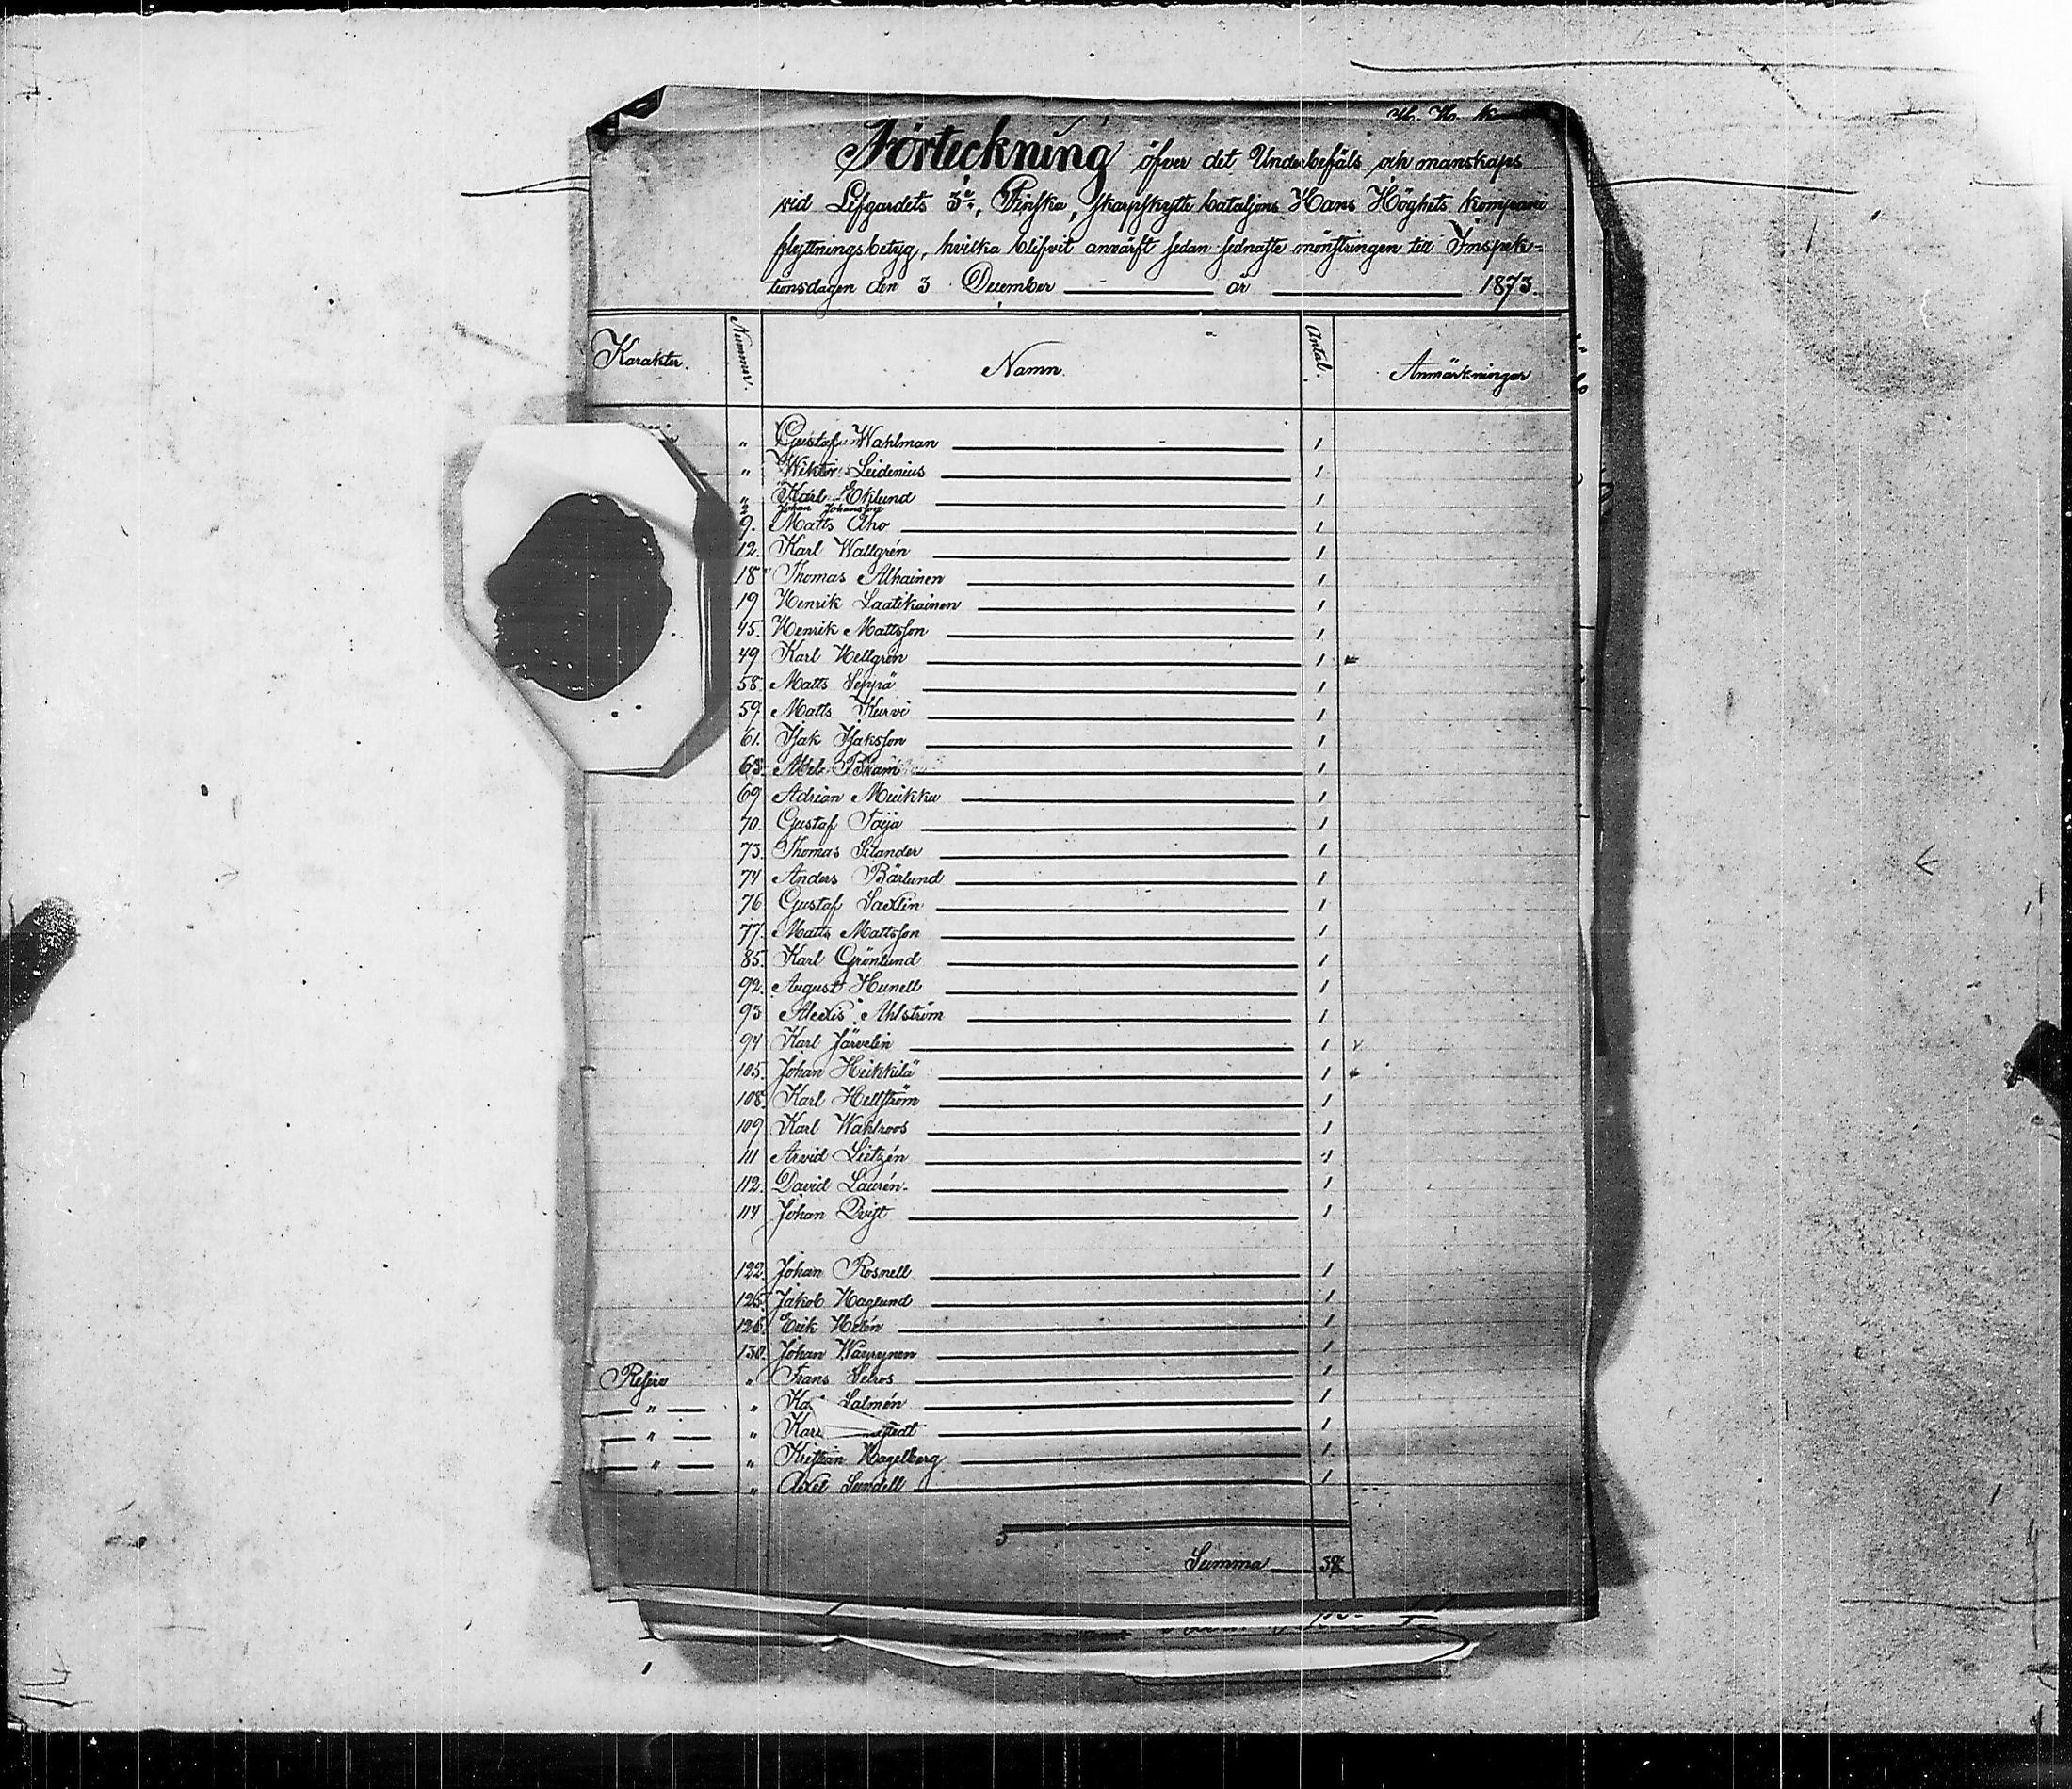 H. H. k
Förteckning öfver det Underbefäls och manskaps
vid Lifgardets 3e, Finska, skarpskytte bataljons Hans Höghets kompani
flyttningsbetyg, hvilka blifvit anvärft sedan sednaste mönstringen till Inspek-
tionsdagen den 3 December år 1873.
Karakter. Nummer. Namn. Antal. Anmärkningar
" Gustaf Wahlman 1
" Wiktor Leidenius 1
" Karl Eklund 1
Johan Johansson
9. Matts Aho 1
12. Karl Wallgrén 1
18 Thomas Alhainen 1
19 Henrik Laatikainen 1
45. Henrik Mattsson 1
49 Karl Hellgren 1
58. Matts Seppä 1
59 Matts Kurvi 1
61. Isak Isaksson 1
63. 1
69 Adrian Muikku 1
70. Gustaf Toija 1
73. Thomas Silander 1
74 Anders Bärlund 1
76 Gustaf Saxlin 1
77. Matts Mattsson 1
85. Karl Grönlund 1
92. August Hunell 1
93 Alexis Ahlström 1
94 Karl Järvelin 1
105. Johan Heikkilä 1
108. Karl Hellström 1
109 Karl Wahlroos 1
111 Arvid Lietzén 1
112. David Laurén 1
114 Johan Qvist 1
122. Johan Rosnell 1
125. Jakob Haglund 1
128. Erik Helén 1
130. Johan Wäyrynen 1
Reserv " Frans Selros 1
" " Ka Salmén 1
" " Kar stedt 1
" " Kristian Hagelberg 1
" " Axel Sundell 1
Summa 38